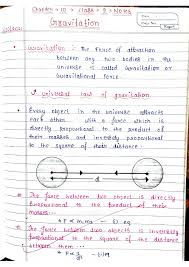 Chapter - 10 Class - 9 Notes
Gravitation
Date
Page
Gravitation : The force of attraction
between any two bodies in the
universe is called gravitation or
gravitational force.
Universal law of gravitation.
Every object in the universe attracts
each other with a force which is
directly proportional to the product of
their masses and inversely proportional
to the square of their distance.
d
The force between two object is directly
proportional to the product of their
masses.
F ∝ m₁m₂ — (i) eq
The force between two objects is inversely
proportional to the square of the distance
between them
F ∝ 1/d²